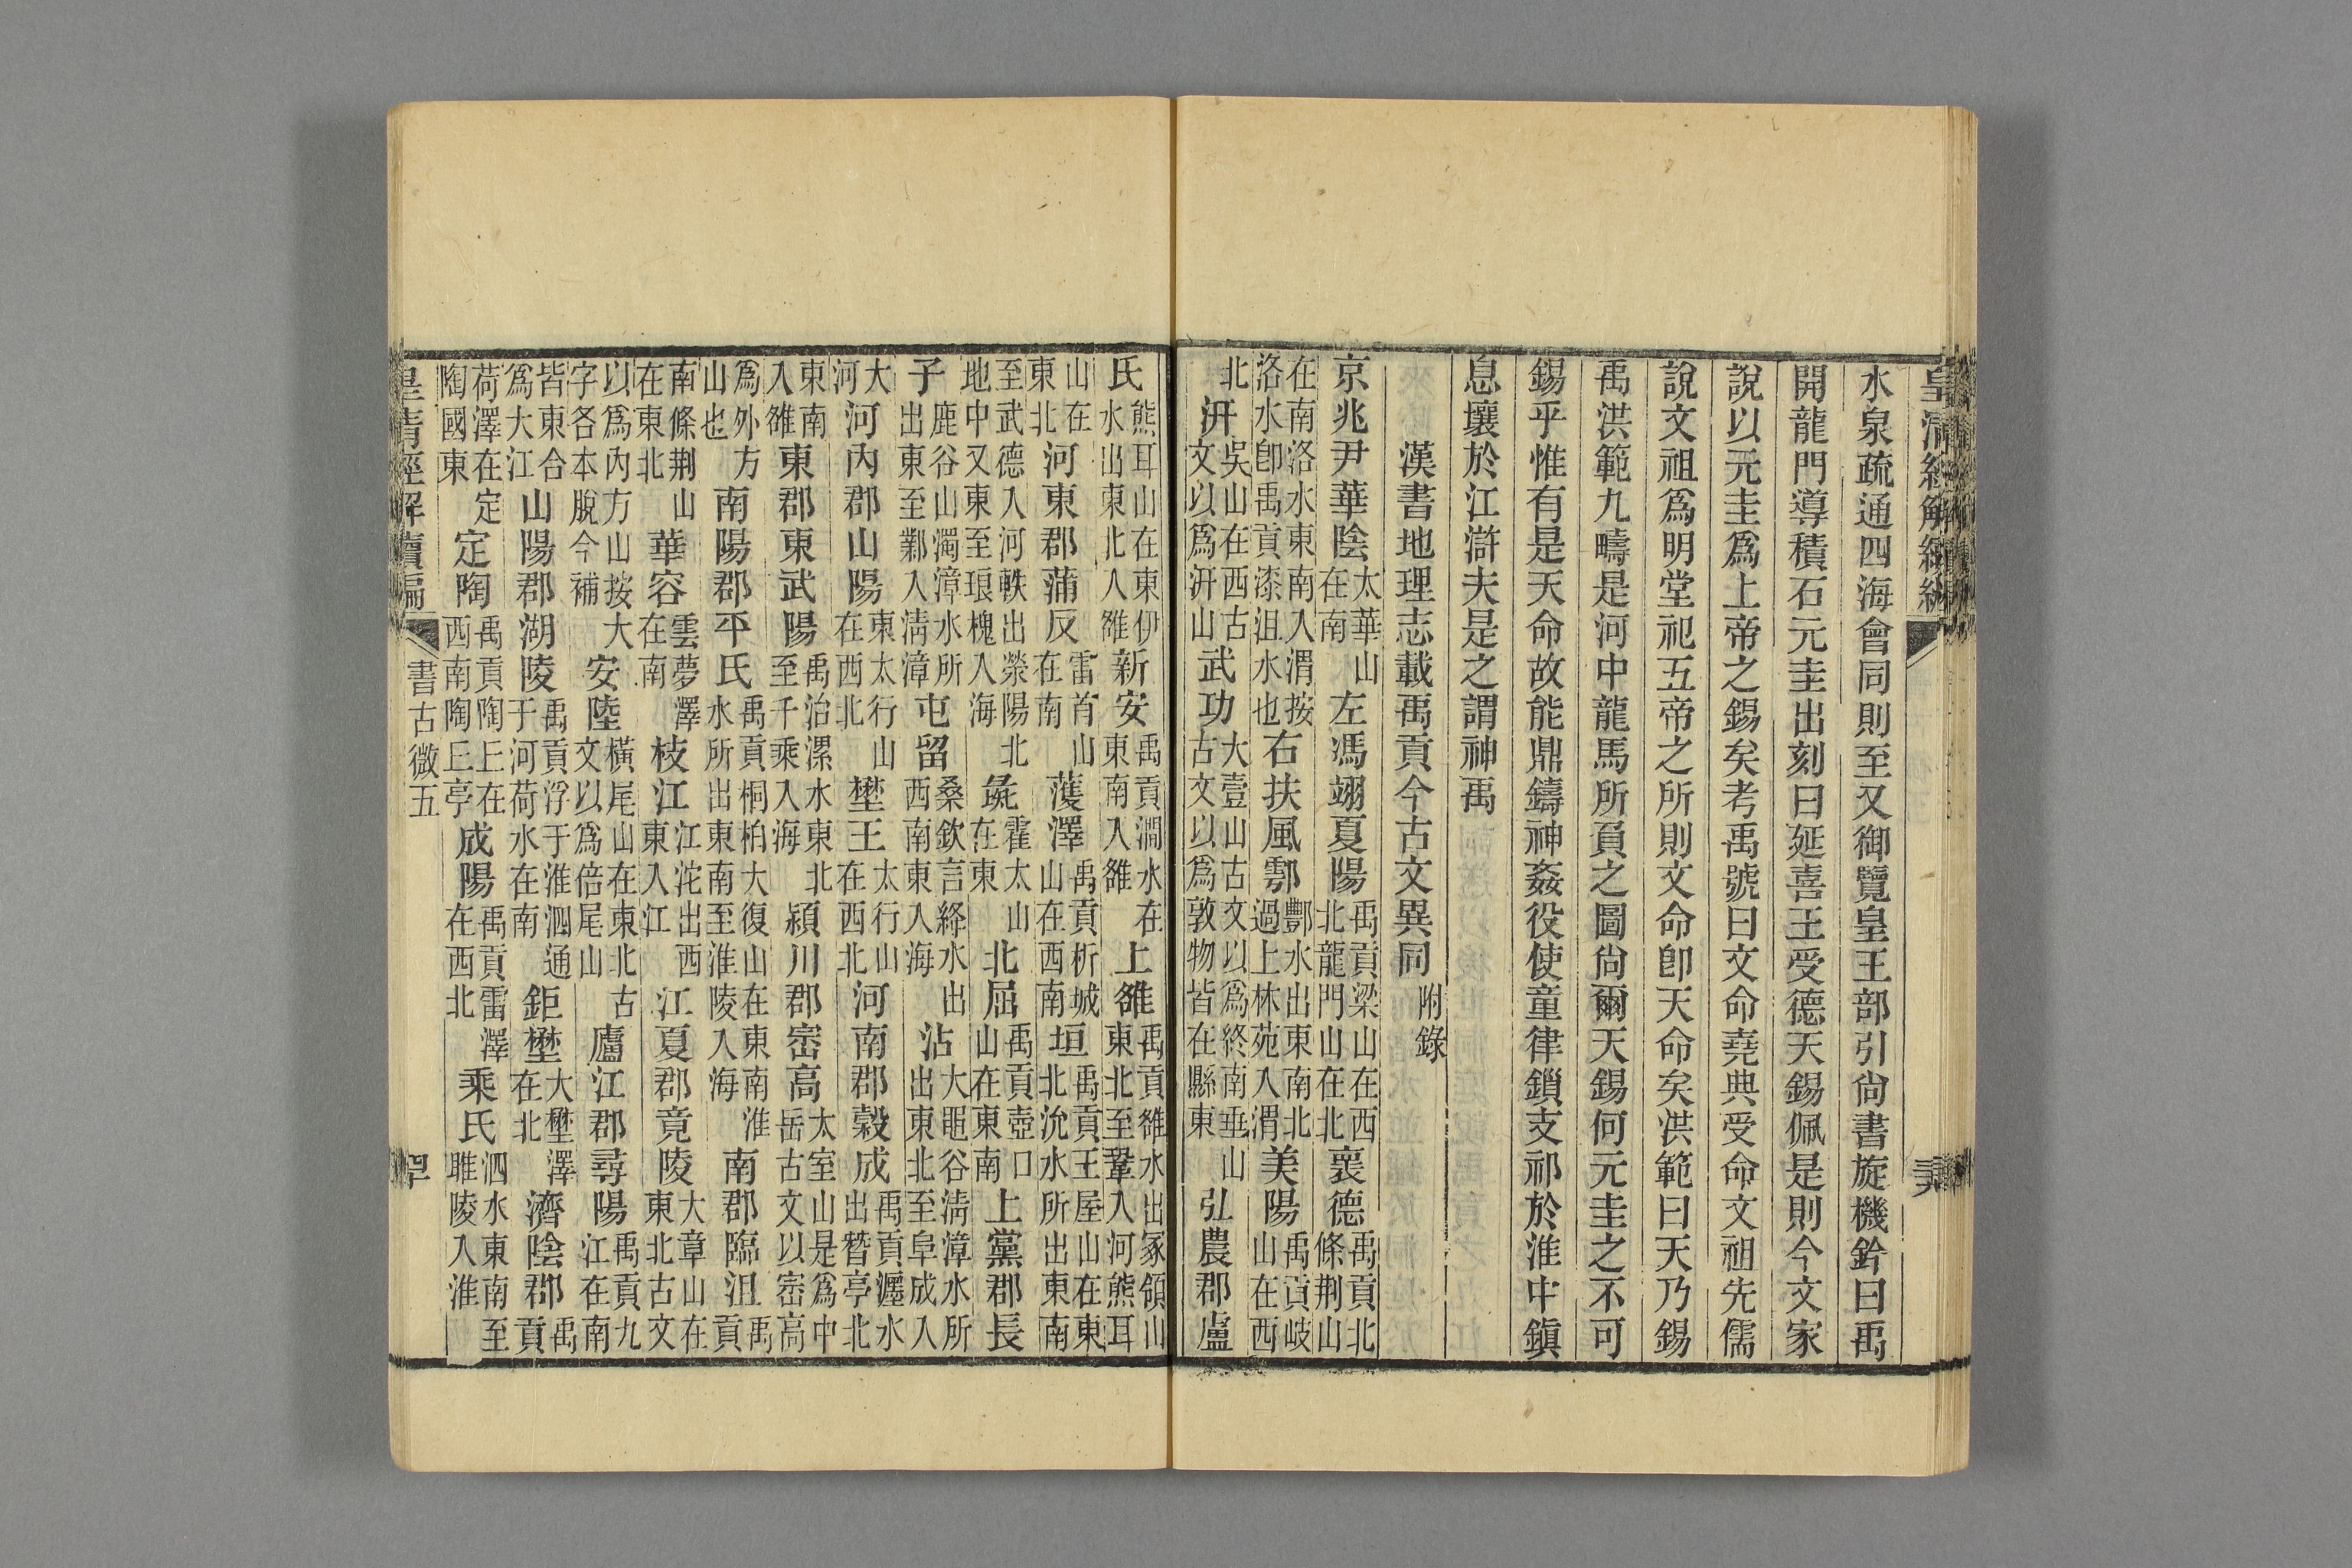 皇清經解續編
水泉疏通四海會同則至又御覽皇王部引尙書旋機鈐曰禹
開龍門導積石元圭出刻曰延喜王受德天錫佩是則今文家
說以元圭爲上帝之錫矣考禹號曰文命堯典受命文祖先儒
說文祖爲明堂祀五帝之所則文命卽天命矣洪範曰天乃錫
禹洪範九疇是河中龍馬所負之圖尙爾天錫何元圭之不可
錫乎惟有是天命故能鼎鑄神姦役使童律鎖支祁於淮中鎭
息壤於江滸夫是之謂神禹
漢書地理志載禹貢今古文異同附錄
京兆尹華陰太華山在南左馮翊夏陽禹貢梁山在西北龍門山在北褱德禹貢北條荆山
在南洛水東南入渭按洛水卽禹貢漆沮水也右扶風鄠酆水出東南北過上林苑入渭美陽禹貢岐山在西
北汧吳山在西古文以爲汧山武功大壹山古文以爲終南垂山古文以爲敦物皆在縣東弘農郡盧
氏熊耳山在東伊水出東北入雒新安禹貢澗水在東南入雒上雒禹貢雒水出冢領山東北至鞏入河熊耳
山在東北河東郡蒲反雷首山在南濩澤禹貢析城山在西南垣禹貢王屋山在東北沇水所出東南
至武德入河軼出滎陽北地中又東至琅槐入海彘霍太山在東北屈禹貢壺口山在東南上黨郡長
子鹿谷山濁漳水所出東至鄴入淸漳屯留桑欽言絳水出西南東入海沾大黽谷淸漳水所出東北至阜成入
大河河內郡山陽東太行山在西北壄王太行山在西北河南郡穀成禹貢瀍水出朁亭北
東南入雒東郡東武陽禹治漯水東北至千乘入海潁川郡崈高太室山是爲中岳古文以崈高
爲外方山也南陽郡平氏禹貢桐柏大復山在東南淮水所出東南至淮陵入海南郡臨沮禹貢
南條荆山在東北華容雲夢澤在南枝江江沱出西東入江江夏郡竟陵大章山在東北古文
以爲內方山按大字各本脫今補安陸橫尾山在東北古文以爲倍尾山廬江郡尋陽禹貢九江在南
皆東合爲大江山陽郡湖陵禹貢浮于淮泗通于河荷水在南鉅壄大壄澤在北濟陰郡禹貢
荷澤在定陶國東定陶禹貢陶丘在西南陶丘亭成陽禹貢雷澤在西北乘氏泗水東南至睢陵入淮
皇淸經解續編 書古微五